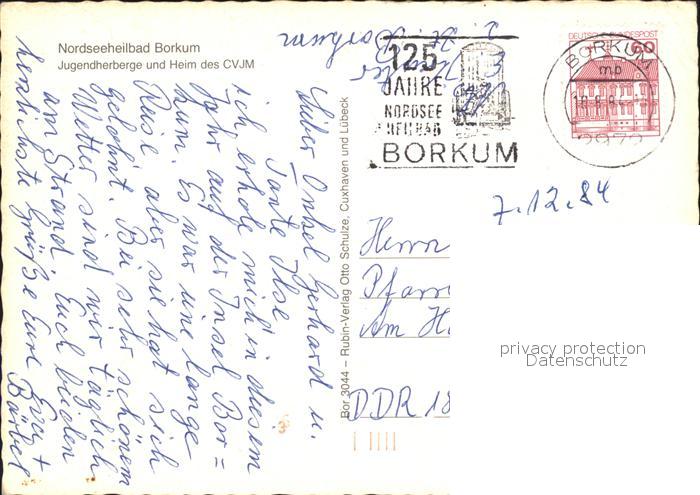 Nordseeheilbad Borkum
Jugendherberge und Heim des CVJM
z. Zt.
Borkum
125
JAHRE
NORDSEE
HEILBAD
BORKUM
DEUTSCHE BUNDESPOST
60
BORKUM
mb
2972
7.12.84
Lieber Onkel Gerhard u.
Tante Ilse
ich erhole mich in diesem
Jahr auf der Insel Bor=
kum. Es war eine lange
Reise, aber sie hat sich
gelohnt. Bei sehr schönem
Wetter sind wir täglich
am Strand. Euch beiden
herzlichste Grüße Eure Eva +
Bärbel
Bor 3044 – Rubin-Verlag Otto Schulze, Cuxhaven und Lübeck
Herrn
Pfarr
Am H
DDR 18
privacy protection
Datenschutz